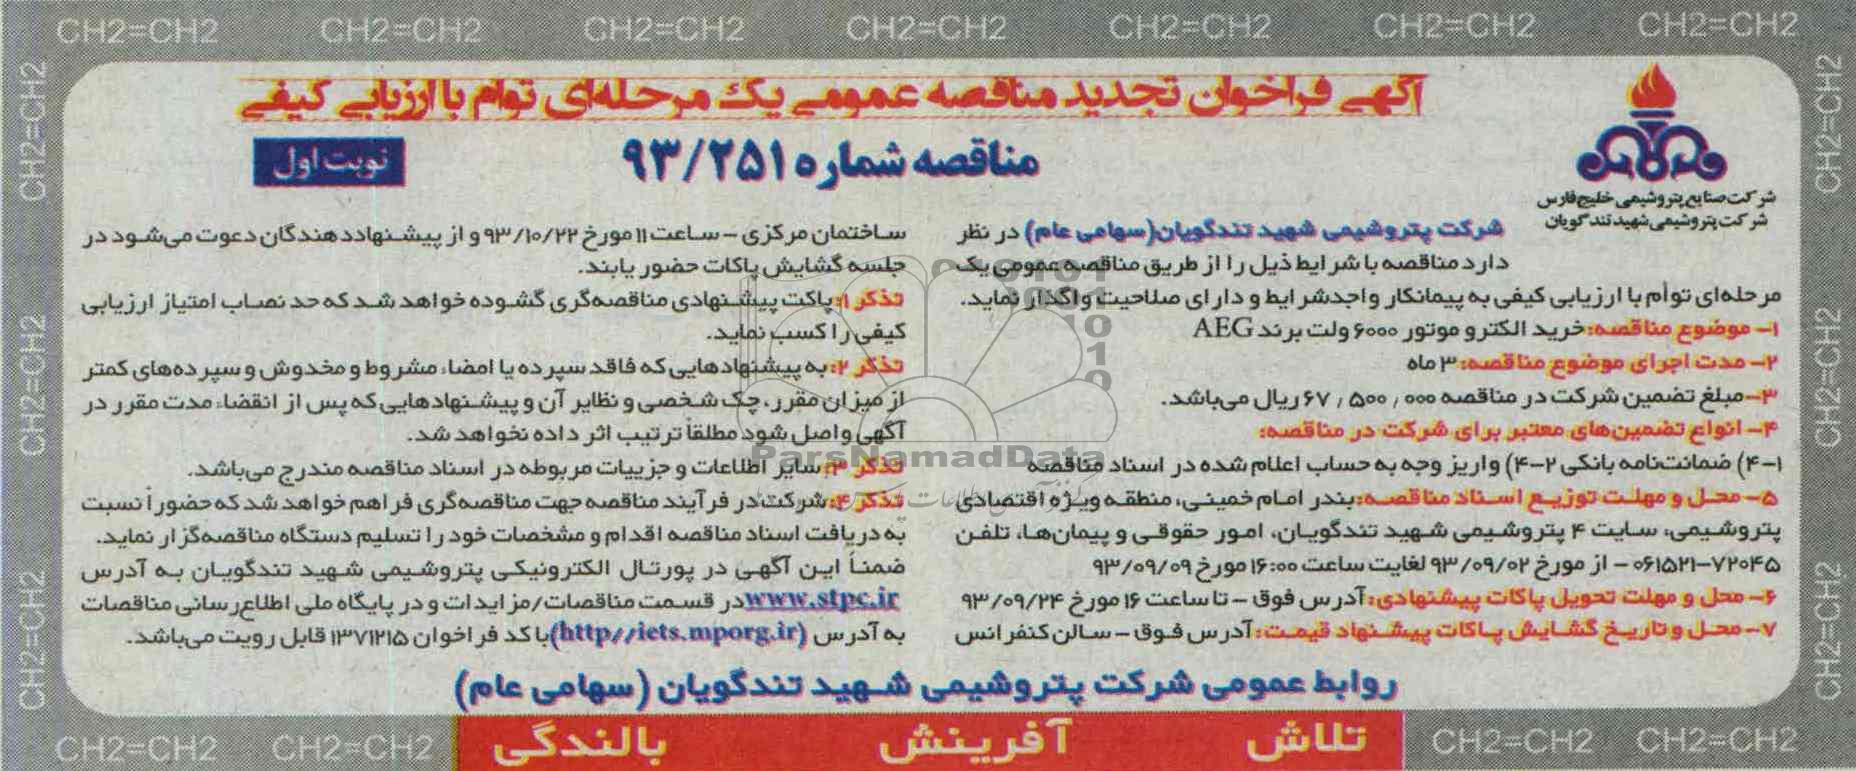 CH2=CH2 CH2=CH2 CH2=CH2 CH2=CH2 CH2=CH2 CH2=CH2 CH2=CH2
آگهی فراخوان تجدید مناقصه عمومی یک مرحله‌ای توأم با ارزیابی کیفی
مناقصه شماره ۹۳/۲۵۱
نوبت اول
شرکت صنایع پتروشیمی خلیج فارس
شرکت پتروشیمی شهید تندگویان
شرکت پتروشیمی شهید تندگویان(سهامی عام) در نظر
دارد مناقصه با شرایط ذیل را از طریق مناقصه عمومی یک
مرحله‌ای توأم با ارزیابی کیفی به پیمانکار واجدشرایط و دارای صلاحیت واگذار نماید.
۱- موضوع مناقصه: خرید الکترو موتور ۶۰۰۰ ولت برند AEG
۲- مدت اجرای موضوع مناقصه: ۳ ماه
۳- مبلغ تضمین شرکت در مناقصه ۶۷٫۵۰۰٫۰۰۰ ریال می‌باشد.
۴- انواع تضمین‌های معتبر برای شرکت در مناقصه:
۴-۱) ضمانت‌نامه بانکی ۴-۲) واریز وجه به حساب اعلام شده در اسناد مناقصه
۵- محل و مهلت توزیع اسناد مناقصه: بندر امام خمینی، منطقه ویژه اقتصادی
پتروشیمی، سایت ۴ پتروشیمی شهید تندگویان، امور حقوقی و پیمان‌ها، تلفن
۷۲۰۴۵-۰۶۱۵۲۱ - از مورخ ۹۳/۰۹/۰۲ لغایت ساعت ۱۶:۰۰ مورخ ۹۳/۰۹/۰۹
۶- محل و مهلت تحویل پاکات پیشنهادی: آدرس فوق - تا ساعت ۱۶ مورخ ۹۳/۰۹/۲۴
۷- محل و تاریخ گشایش پاکات پیشنهاد قیمت: آدرس فوق - سالن کنفرانس
ساختمان مرکزی - ساعت ۱۱ مورخ ۹۳/۱۰/۲۲ و از پیشنهاددهندگان دعوت می‌شود در
جلسه گشایش پاکات حضور یابند.
تذکر ۱: پاکت پیشنهادی مناقصه‌گری گشوده خواهد شد که حد نصاب امتیاز ارزیابی
کیفی را کسب نماید.
تذکر ۲: به پیشنهادهایی که فاقد سپرده یا امضاء، مشروط و مخدوش و سپرده‌های کمتر
از میزان مقرر، چک شخصی و نظایر آن و پیشنهادهایی که پس از انقضاء مدت مقرر در
آگهی واصل شود مطلقاً ترتیب اثر داده نخواهد شد.
تذکر ۳: سایر اطلاعات و جزییات مربوطه در اسناد مناقصه مندرج می‌باشد.
تذکر ۴: شرکت در فرآیند مناقصه جهت مناقصه‌گری فراهم خواهد شد که حضوراً نسبت
به دریافت اسناد مناقصه اقدام و مشخصات خود را تسلیم دستگاه مناقصه‌گزار نماید.
ضمناً این آگهی در پورتال الکترونیکی پتروشیمی شهید تندگویان به آدرس
www.stpc.ir در قسمت مناقصات/مزایدات و در پایگاه ملی اطلاع‌رسانی مناقصات
به آدرس (http//iets.mporg.ir) با کد فراخوان ۱۳۷۱۲۱۵ قابل رویت می‌باشد.
ParsNamadData
روابط عمومی شرکت پتروشیمی شهید تندگویان (سهامی عام)
تلاش آفرینش بالندگی
CH2=CH2 CH2=CH2 CH2=CH2 CH2=CH2
CH2=CH2 CH2=CH2 CH2=CH2
CH2=CH2 CH2=CH2 CH2=CH2